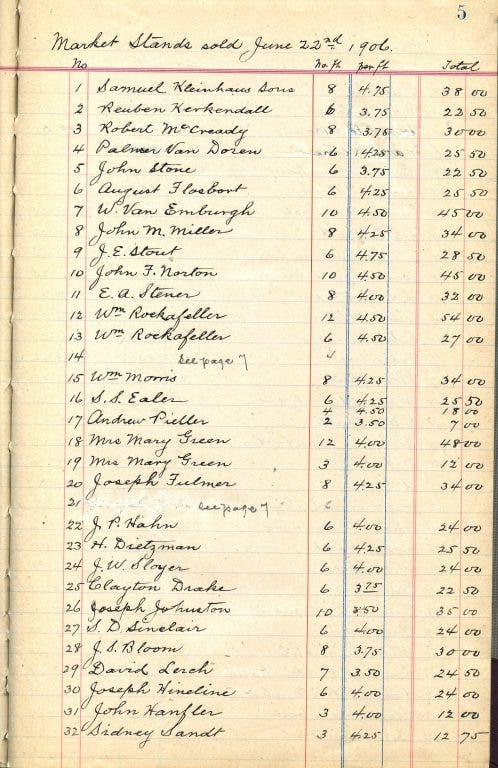 5
Market Stands sold June 22nd 1906.
No No ft per ft Total
1 Samuel Kleinhaus Sons 8 4.75 38 00
2 Reuben Kerkendall 6 3.75 22 50
3 Robert McCready 8 3.75 30 00
4 Palmer Van Doren 6 4.25 25 50
5 John Stone 6 3.75 22 50
6 August Flosbort 6 4.25 25 50
7 W. Van Emburgh 10 4.50 45 00
8 John M. Miller 8 4.25 34 00
9 J. E. Stout 6 4.75 28 50
10 John F. Norton 10 4.50 45 00
11 E. A. Stener 8 4.00 32 00
12 Wm Rockafeller 12 4.50 54 00
13 Wm Rockafeller 6 4.50 27 00
14 See page 7
15 Wm Morris 8 4.25 34 00
16 S. S. Ealer 6 4.25 25 50
4 4.50 18 00
17 Andrew 2 3.50 7 00
18 Mrs Mary Green 12 4.00 48 00
19 Mrs Mary Green 3 4.00 12 00
20 Joseph Fulmer 8 4.25 34 00
21 See page 7 6
22 J. P. Hahn 6 4.00 24 00
23 H. Dietzman 6 4.25 25 50
24 J. W. Sloyer 6 4.00 24 00
25 Clayton Drake 6 3.75 22 50
26 Joseph Johnston 10 3.50 35 00
27 S. D. Sinclair 6 4.00 24 00
28 J. S. Bloom 8 3.75 30 00
29 David Lerch 7 3.50 24 50
30 Joseph Hineline 6 4.00 24 00
31 John Hanfler 3 4.00 12 00
32 Sidney Sandt 3 4.25 12 75